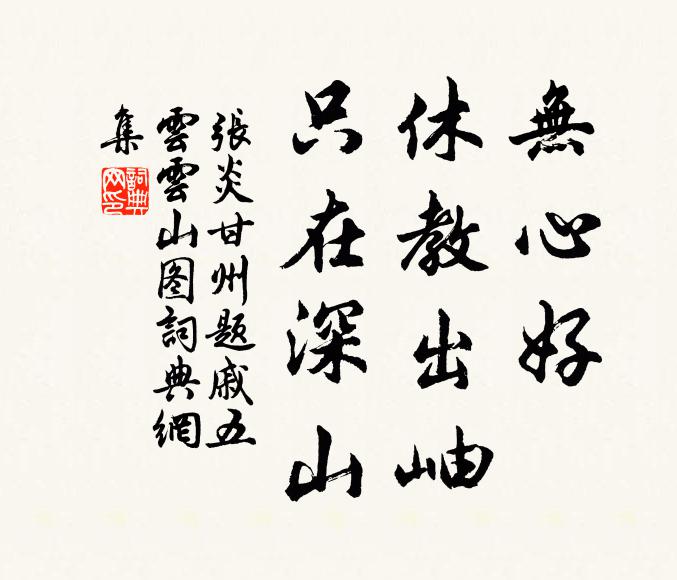 無心好
休教出岫
只在深山
張炎甘州題戚五
雲雲山图詞典網
集
詞典
网印